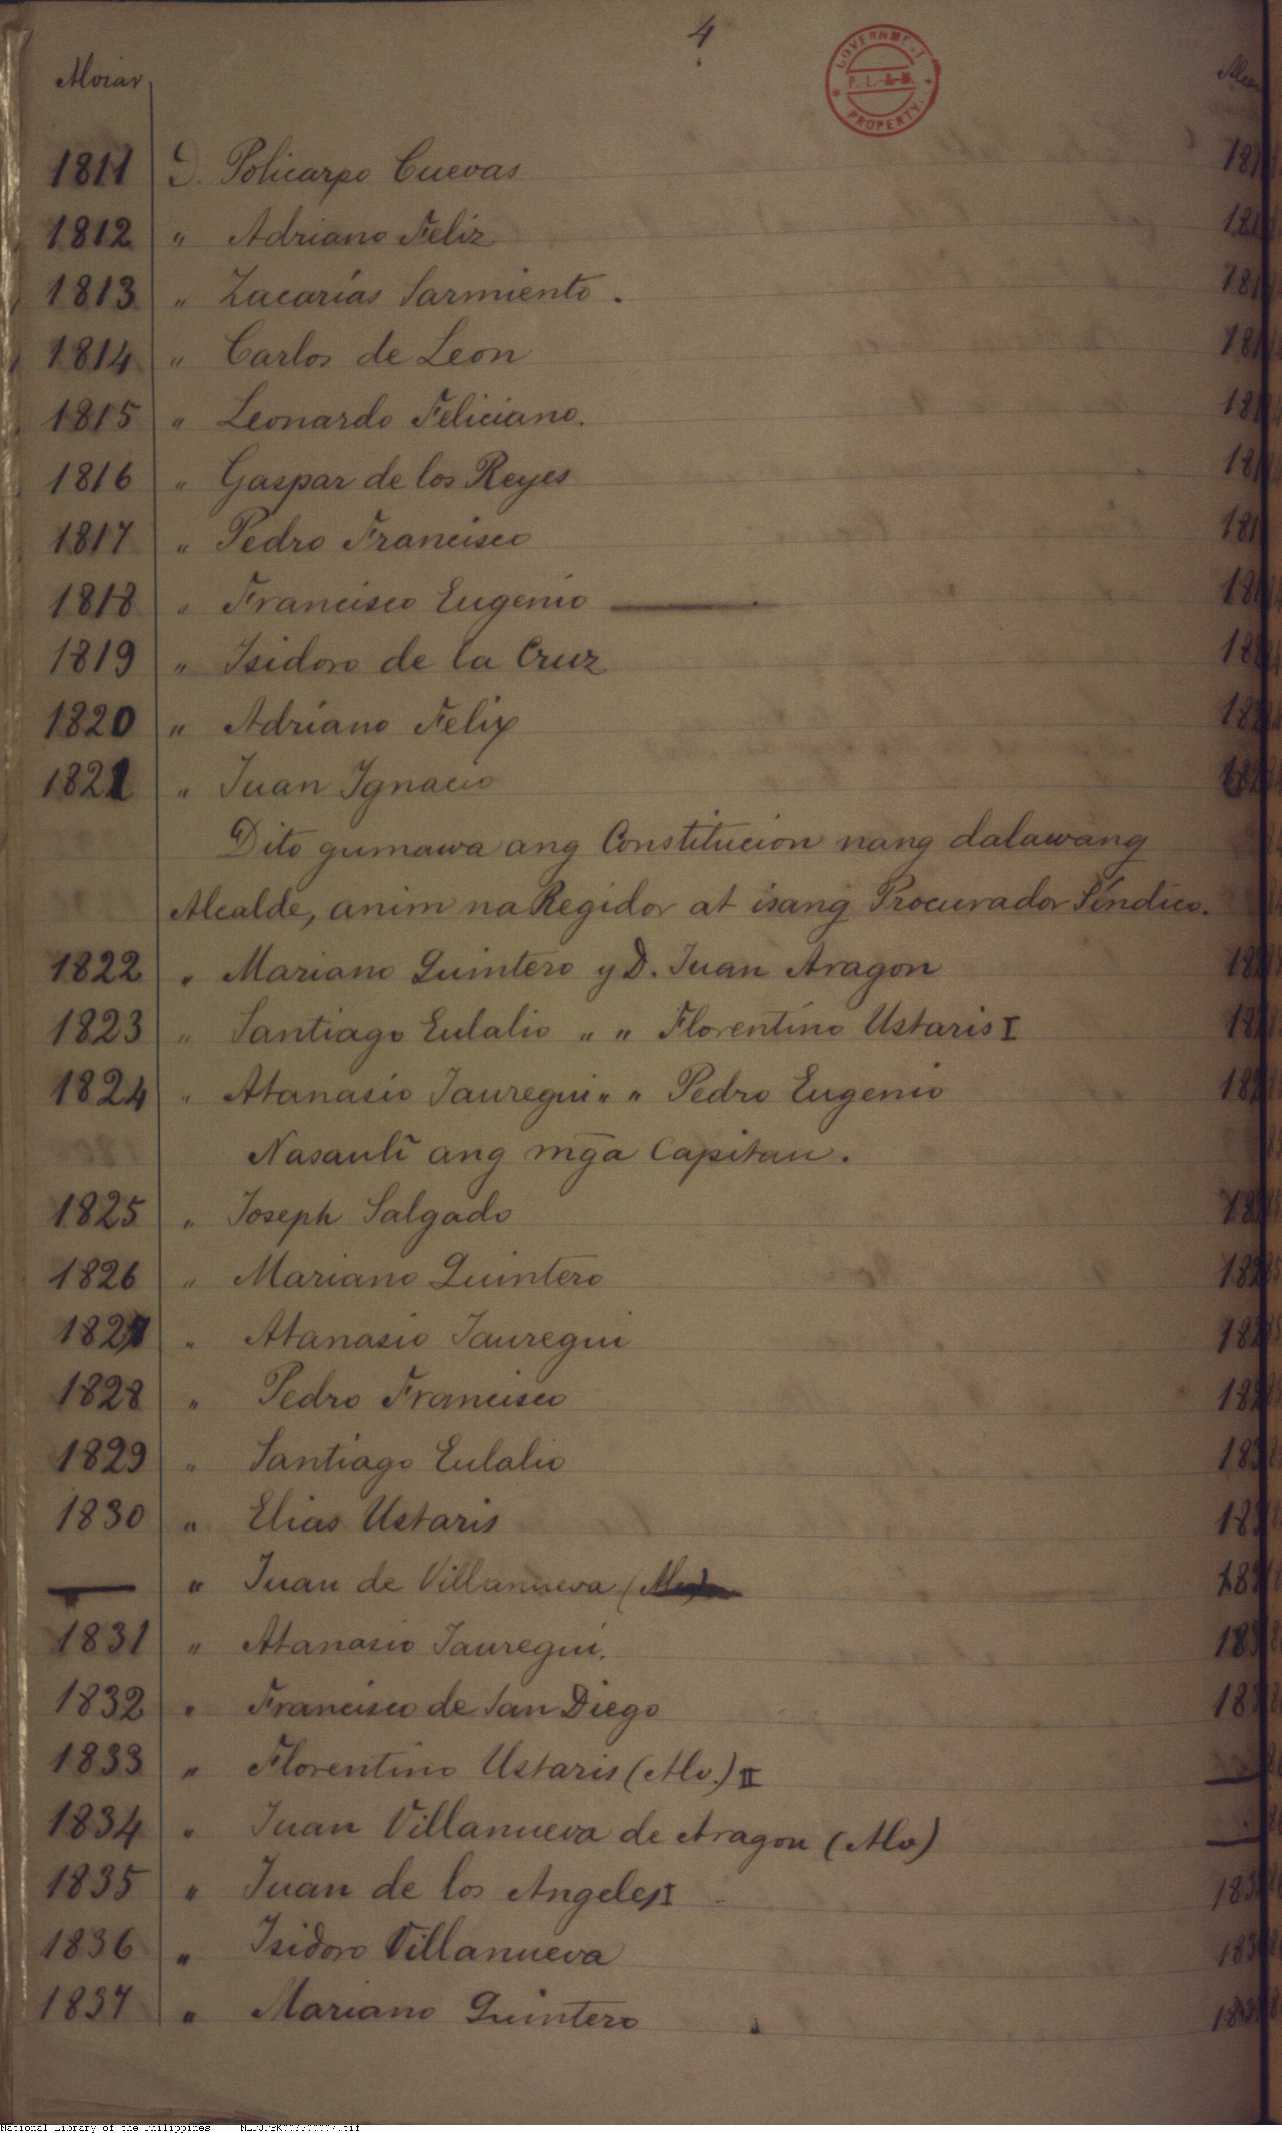 4
GOVERNMENT
PROPERTY
1811 D. Policarpo Cuevas
1812 " Adriano Feliz
1813 " Zacarías Sarmiento.
1814 " Carlos de Leon
1815 " Leonardo Feliciano.
1816 " Gaspar de los Reyes
1817 " Pedro Francisco
1818 " Francisco Eugenio —
1819 " Isidoro de la Cruz
1820 " Adriano Felix
1821 " Juan Ignacio
Dito gumawa ang Constitucion nang dalawang
Alcalde, anim na Regidor at isang Procurador Síndico.
1822 " Mariano Quintero y D. Juan Aragon
1823 " Santiago Eulalio " " Florentino Ustaris I
1824 " Atanasio Jauregui " " Pedro Eugenio
Nasauli ang mg̃a Capitan.
1825 " Joseph Salgado
1826 " Mariano Quintero
1827 " Atanasio Jauregui
1828 " Pedro Francisco
1829 " Santiago Eulalio
1830 " Elias Ustaris
— " Juan de Villanueva
1831 " Atanasio Jauregui.
1832 " Francisco de San Diego
1833 " Florentino Ustaris (Alv.) II
1834 " Juan Villanueva de Aragon (Alv)
1835 " Juan de los Angeles I
1836 " Isidoro Villanueva
1837 " Mariano Quintero
National Library of the Philippines